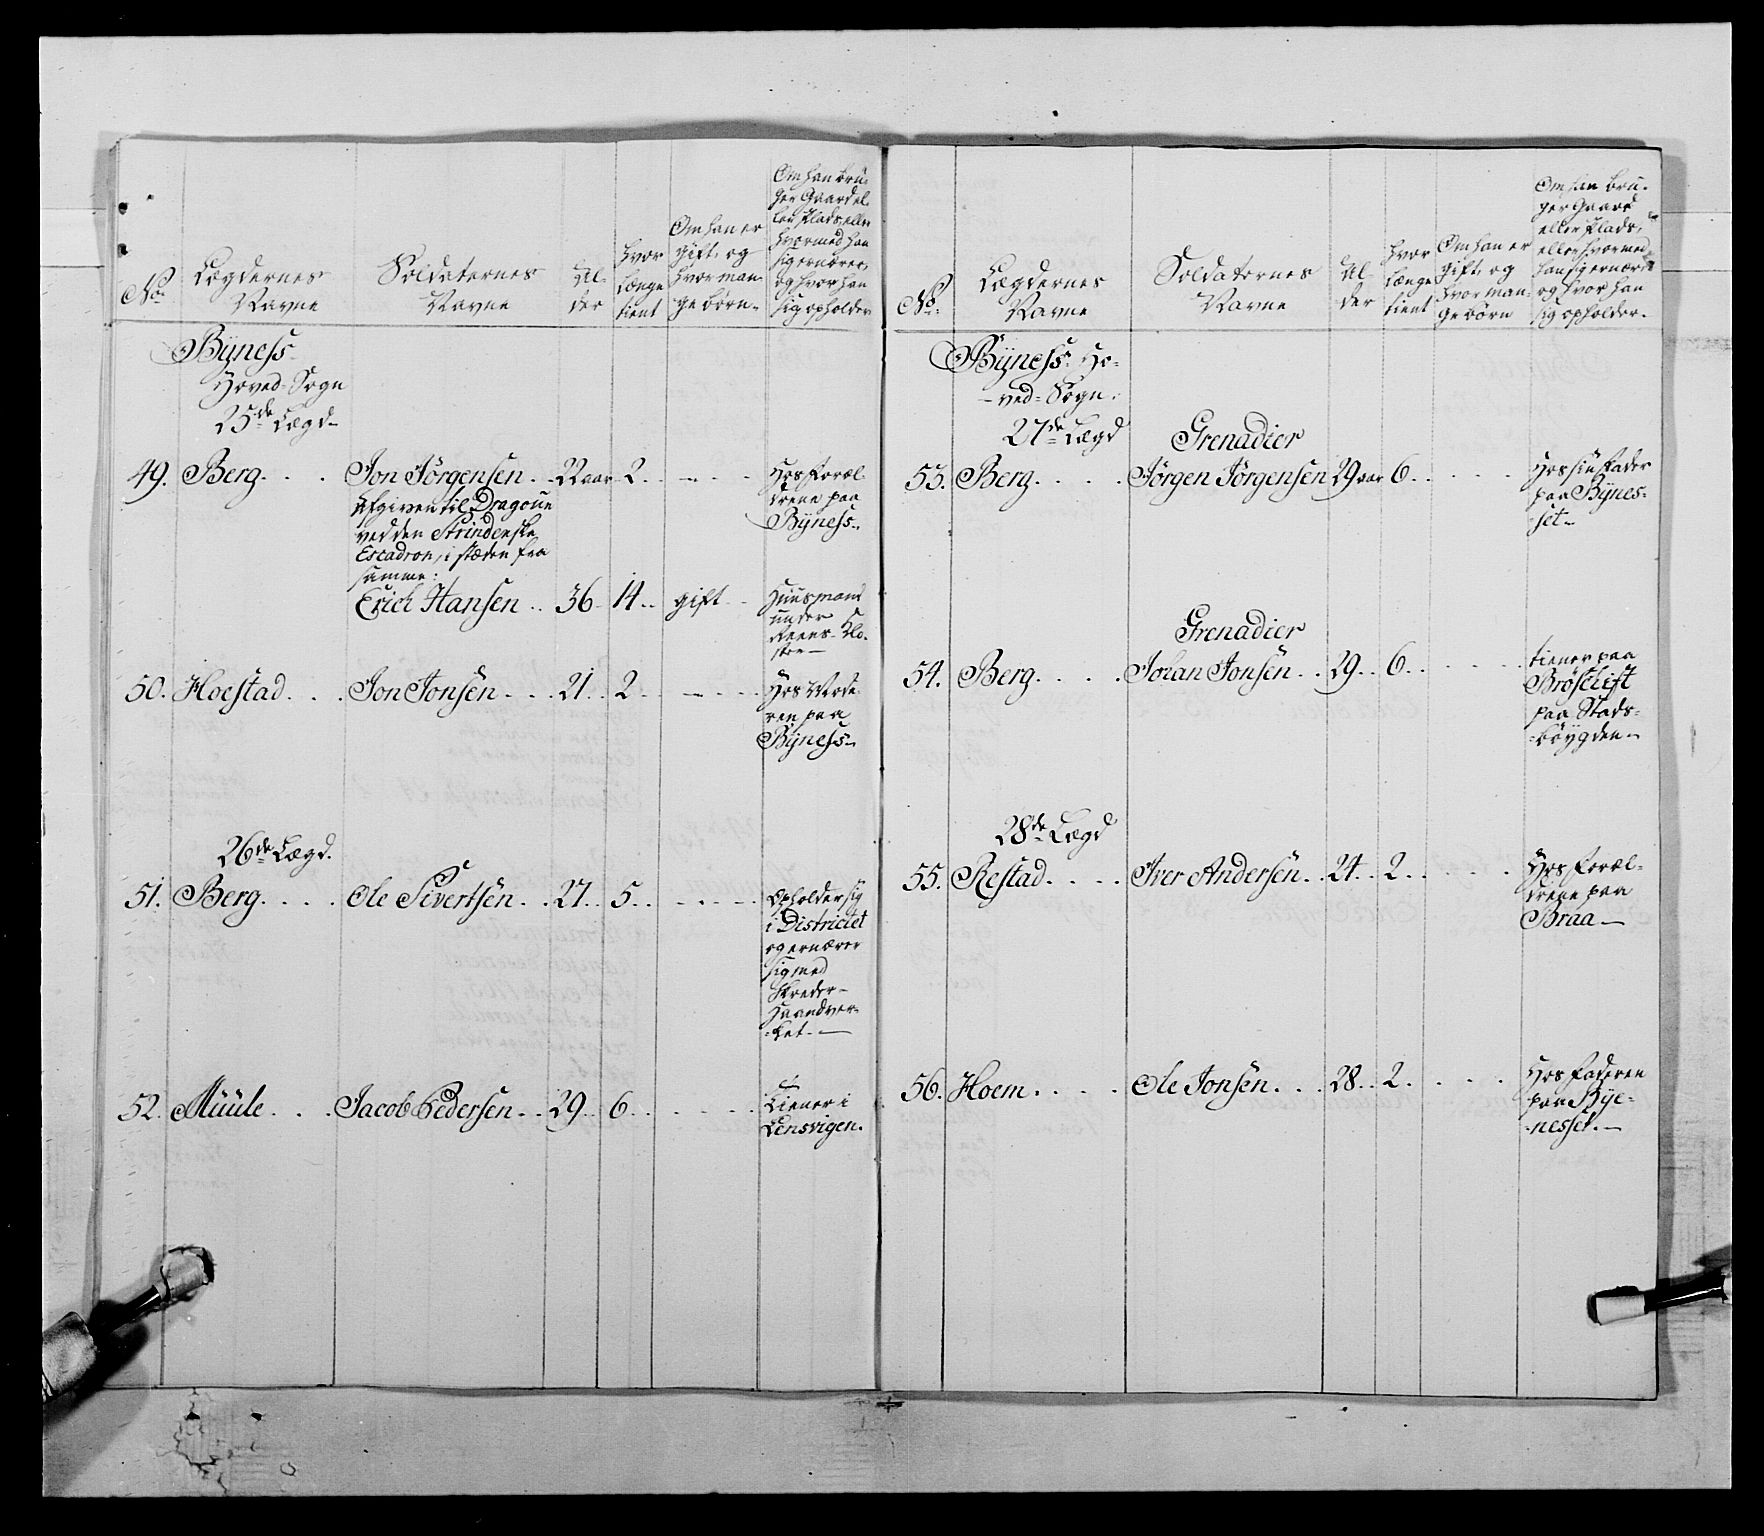 No:
Lægdernes
Navne
Soldaternes
Navne
Al-
der
hvor
længe
tient
Om han er
gift, og
hvor man-
ge børn-
Om han bru-
ger Gaard el-
ler Plads eller
hvormed han
sig ernærer,
og hvor han
sig opholder
Byness-
Hoved-Sogn
25de Lægd-
49. Berg. . . . Jon Jörgensen . . 22 aar 2. . - . . Hos Foræl-
drene paa
Byness-.
Afgiven til Dragoun
ved den Strindenske
Escadron, i stæden fra
samme:
Erich Hansen . . 36. 14 . . gift . . Huusmand
under
Reens- Klo-
ster-
50. Hoestad. . . . Jon Jonsen . . . 21. . 2. . - . . . Hos
paa
Byness-
26de Lægd.
51. Berg. . . . . Ole Sivertsen . . 27. . 5. . . . . Opholder sig
i Districtet
og ernærer
sig med
Skreder-
Haandver-
-ket.-
52. Müüle. . . . Jacob Pedersen. . . 29. . 6. . . . . Tiener i
Lensvigen.
No:
Lægdernes
Navne
Soldaternes
Navne
Al-
der
hvor
længe
tient
Om han er
gift, og
hvor man-
ge børn
Om han bru-
ger Gaard
eller Plads,
eller hvormed
han sig ernærer
og hvor han
sig opholder-
Byness: Ho-
-ved-Sogn.
27de Lægd
Grenadier
53. Berg. . . . . Jörgen Jörgensen 29 aar 6. . . . . Hos sin Fader
paa Bynes-
set-
Grenadier
54. Berg. . . . . Johan Jonsen. . 29. . 6. . . . . tiener paa
paa Stads-
-böygden-
28de Lægd
55. Restad. . . . Iver Andersen. . 24. . 2. . . . . Hos Foræl-
drene paa
Braa-
56. Hoem. . . . . Ole Jonsen. . . 28. . 2. . . . . Hos Faderen
paa Bye-
-nesset.-